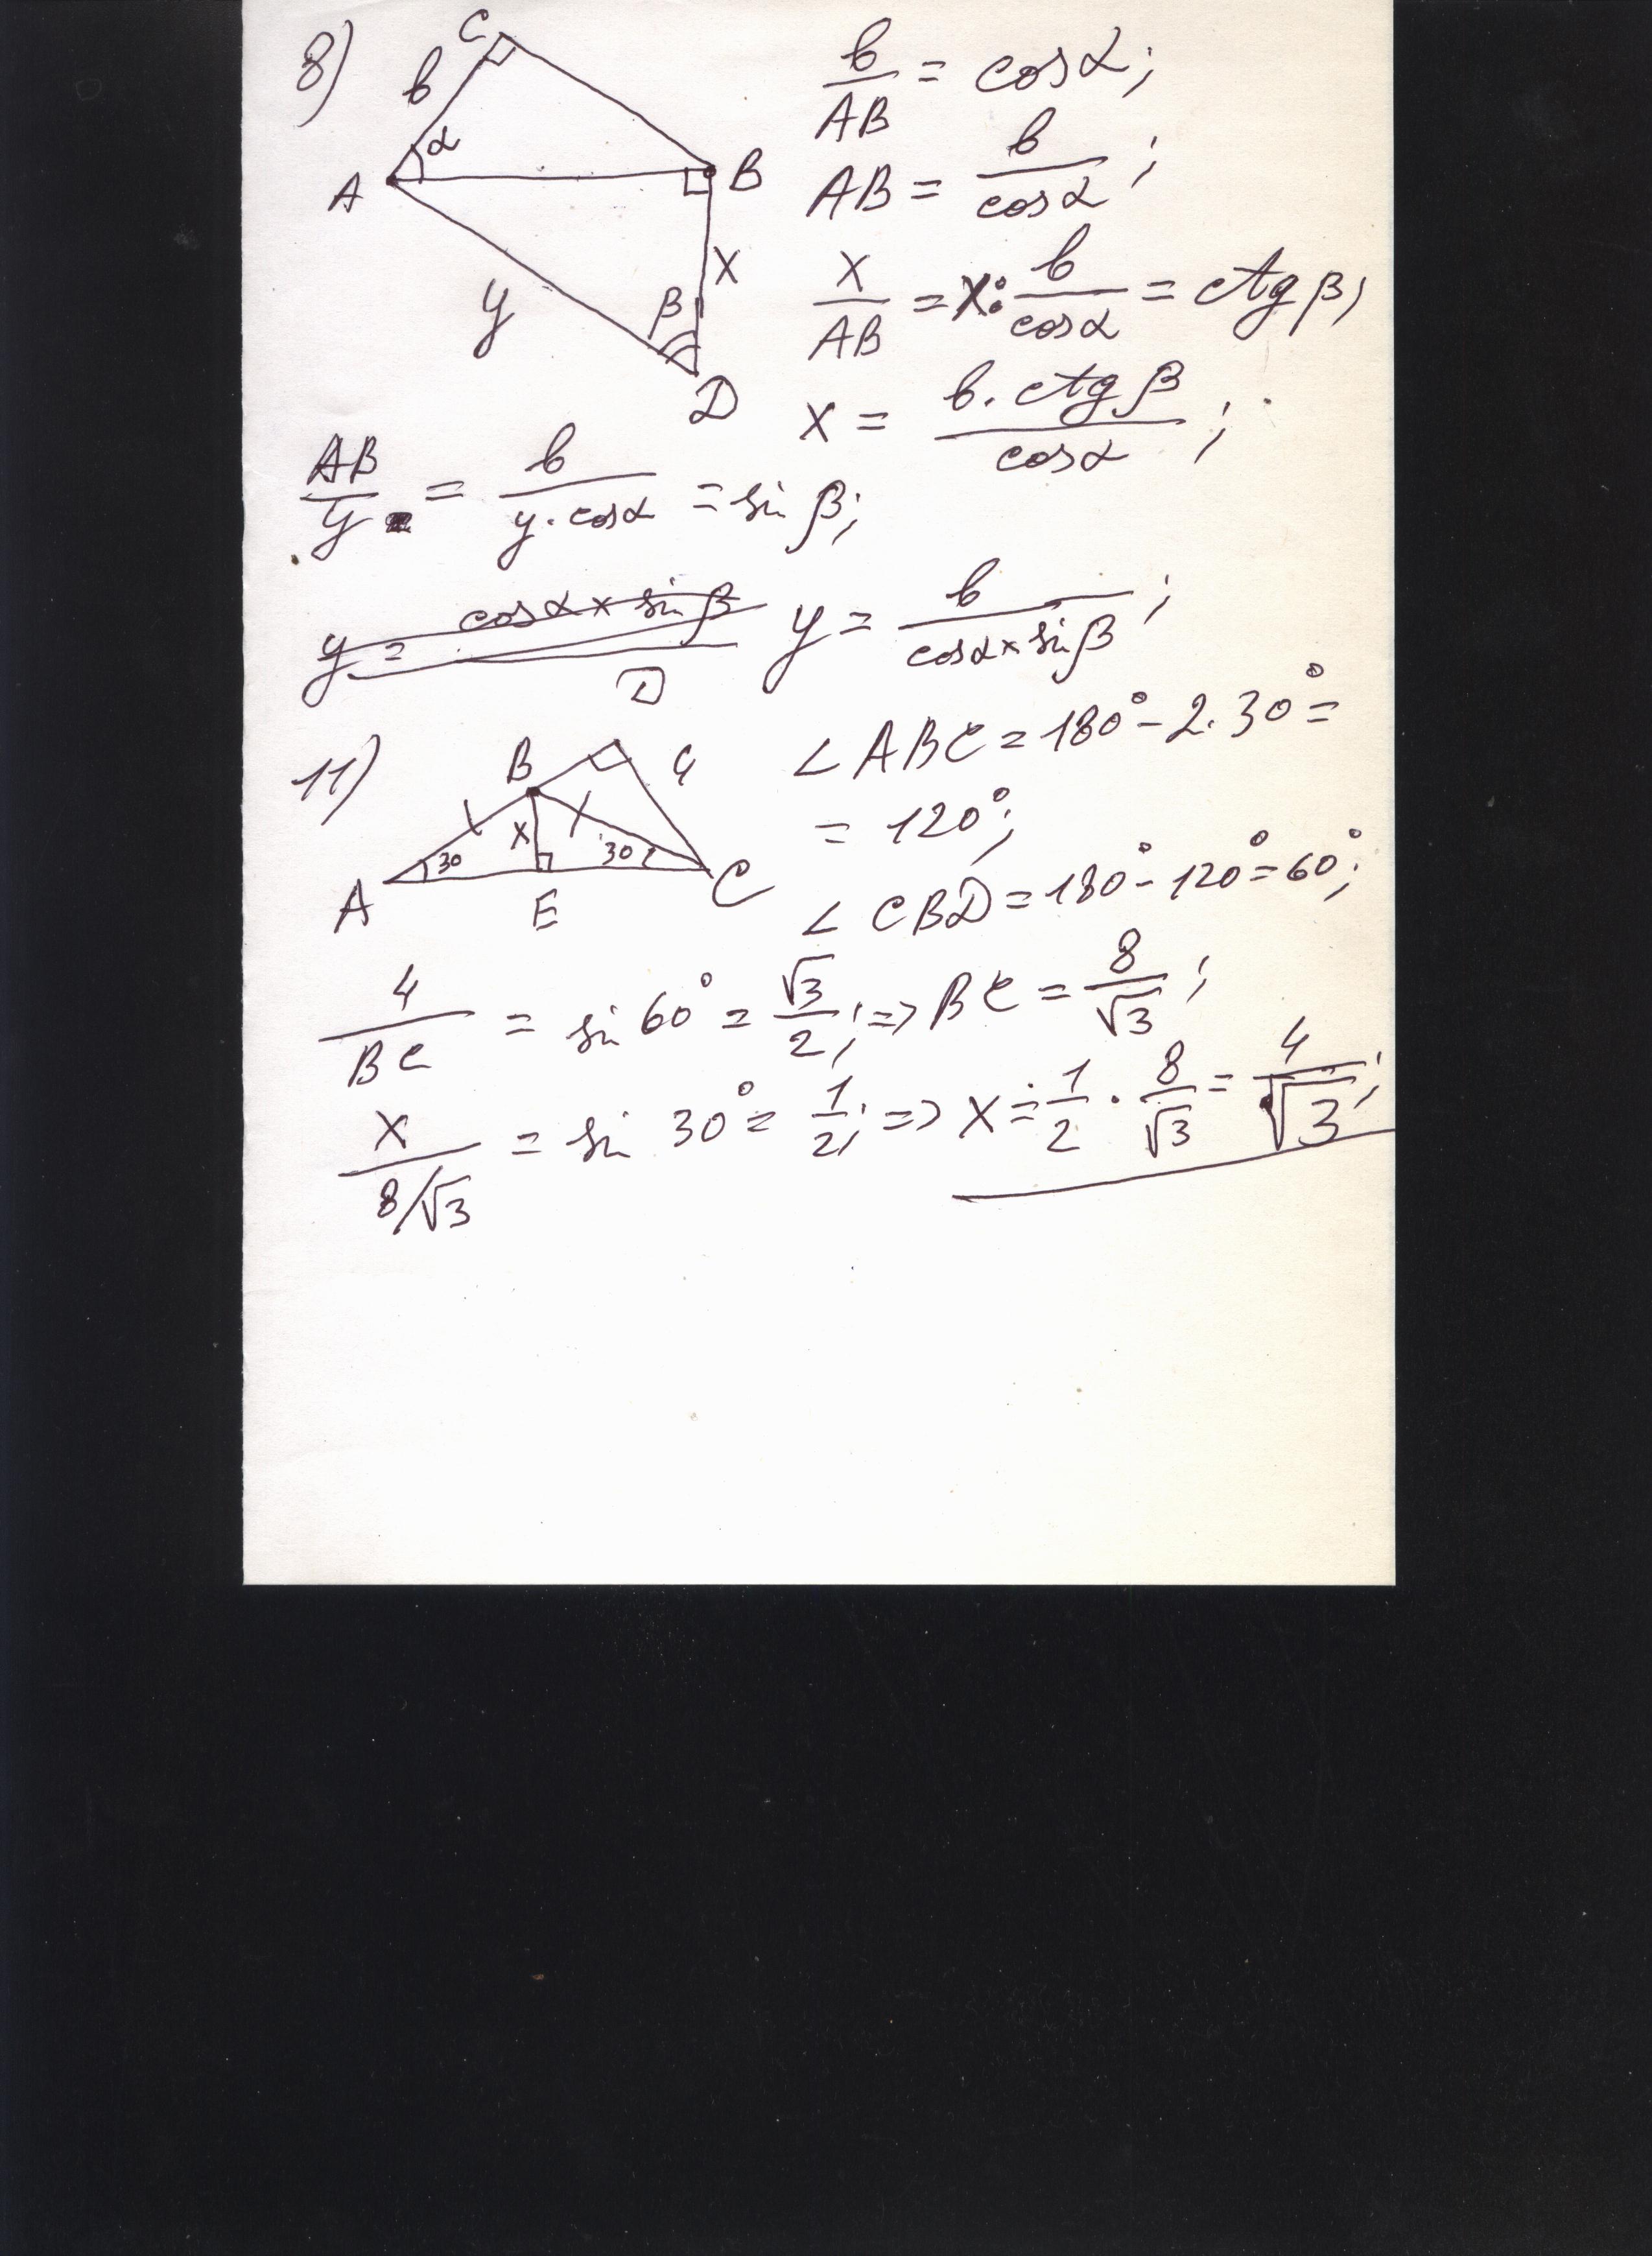 8)
C
b
α
A
B
x
y
β
D
b/AB = cosα;
AB = b/cosα;
x/AB = x : b/cosα = ctg β;
x = b · ctg β/cosα;
AB/y = b/y · cosα = sin β;
y = cosα x sin β
y = b/cosα x sin β;
11)
D
B
4
x
30
30
A
E
C
∠ ABC = 180° - 2 · 30° =
= 120°;
∠ CBD = 180° - 120° = 60°;
4/BC = sin 60° = √3/2; => BC = 8/√3;
x/8/√3 = sin 30° = 1/2; => x = 1/2 · 8/√3 = 4/√3;